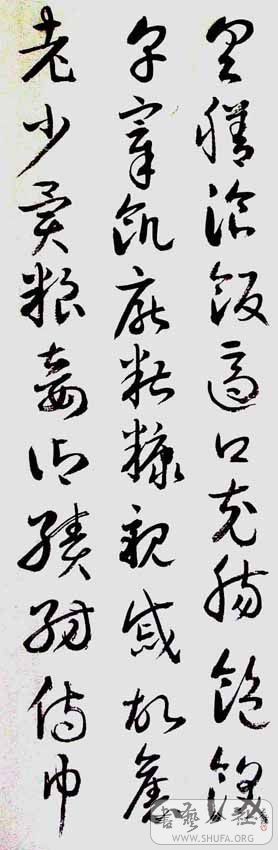 具膳湌飯適口充腸飽飫
烹宰飢厭糟糠親戚故舊
老少異粮妾御績紡侍巾
書藝公社
WWW.SHUFA.ORG